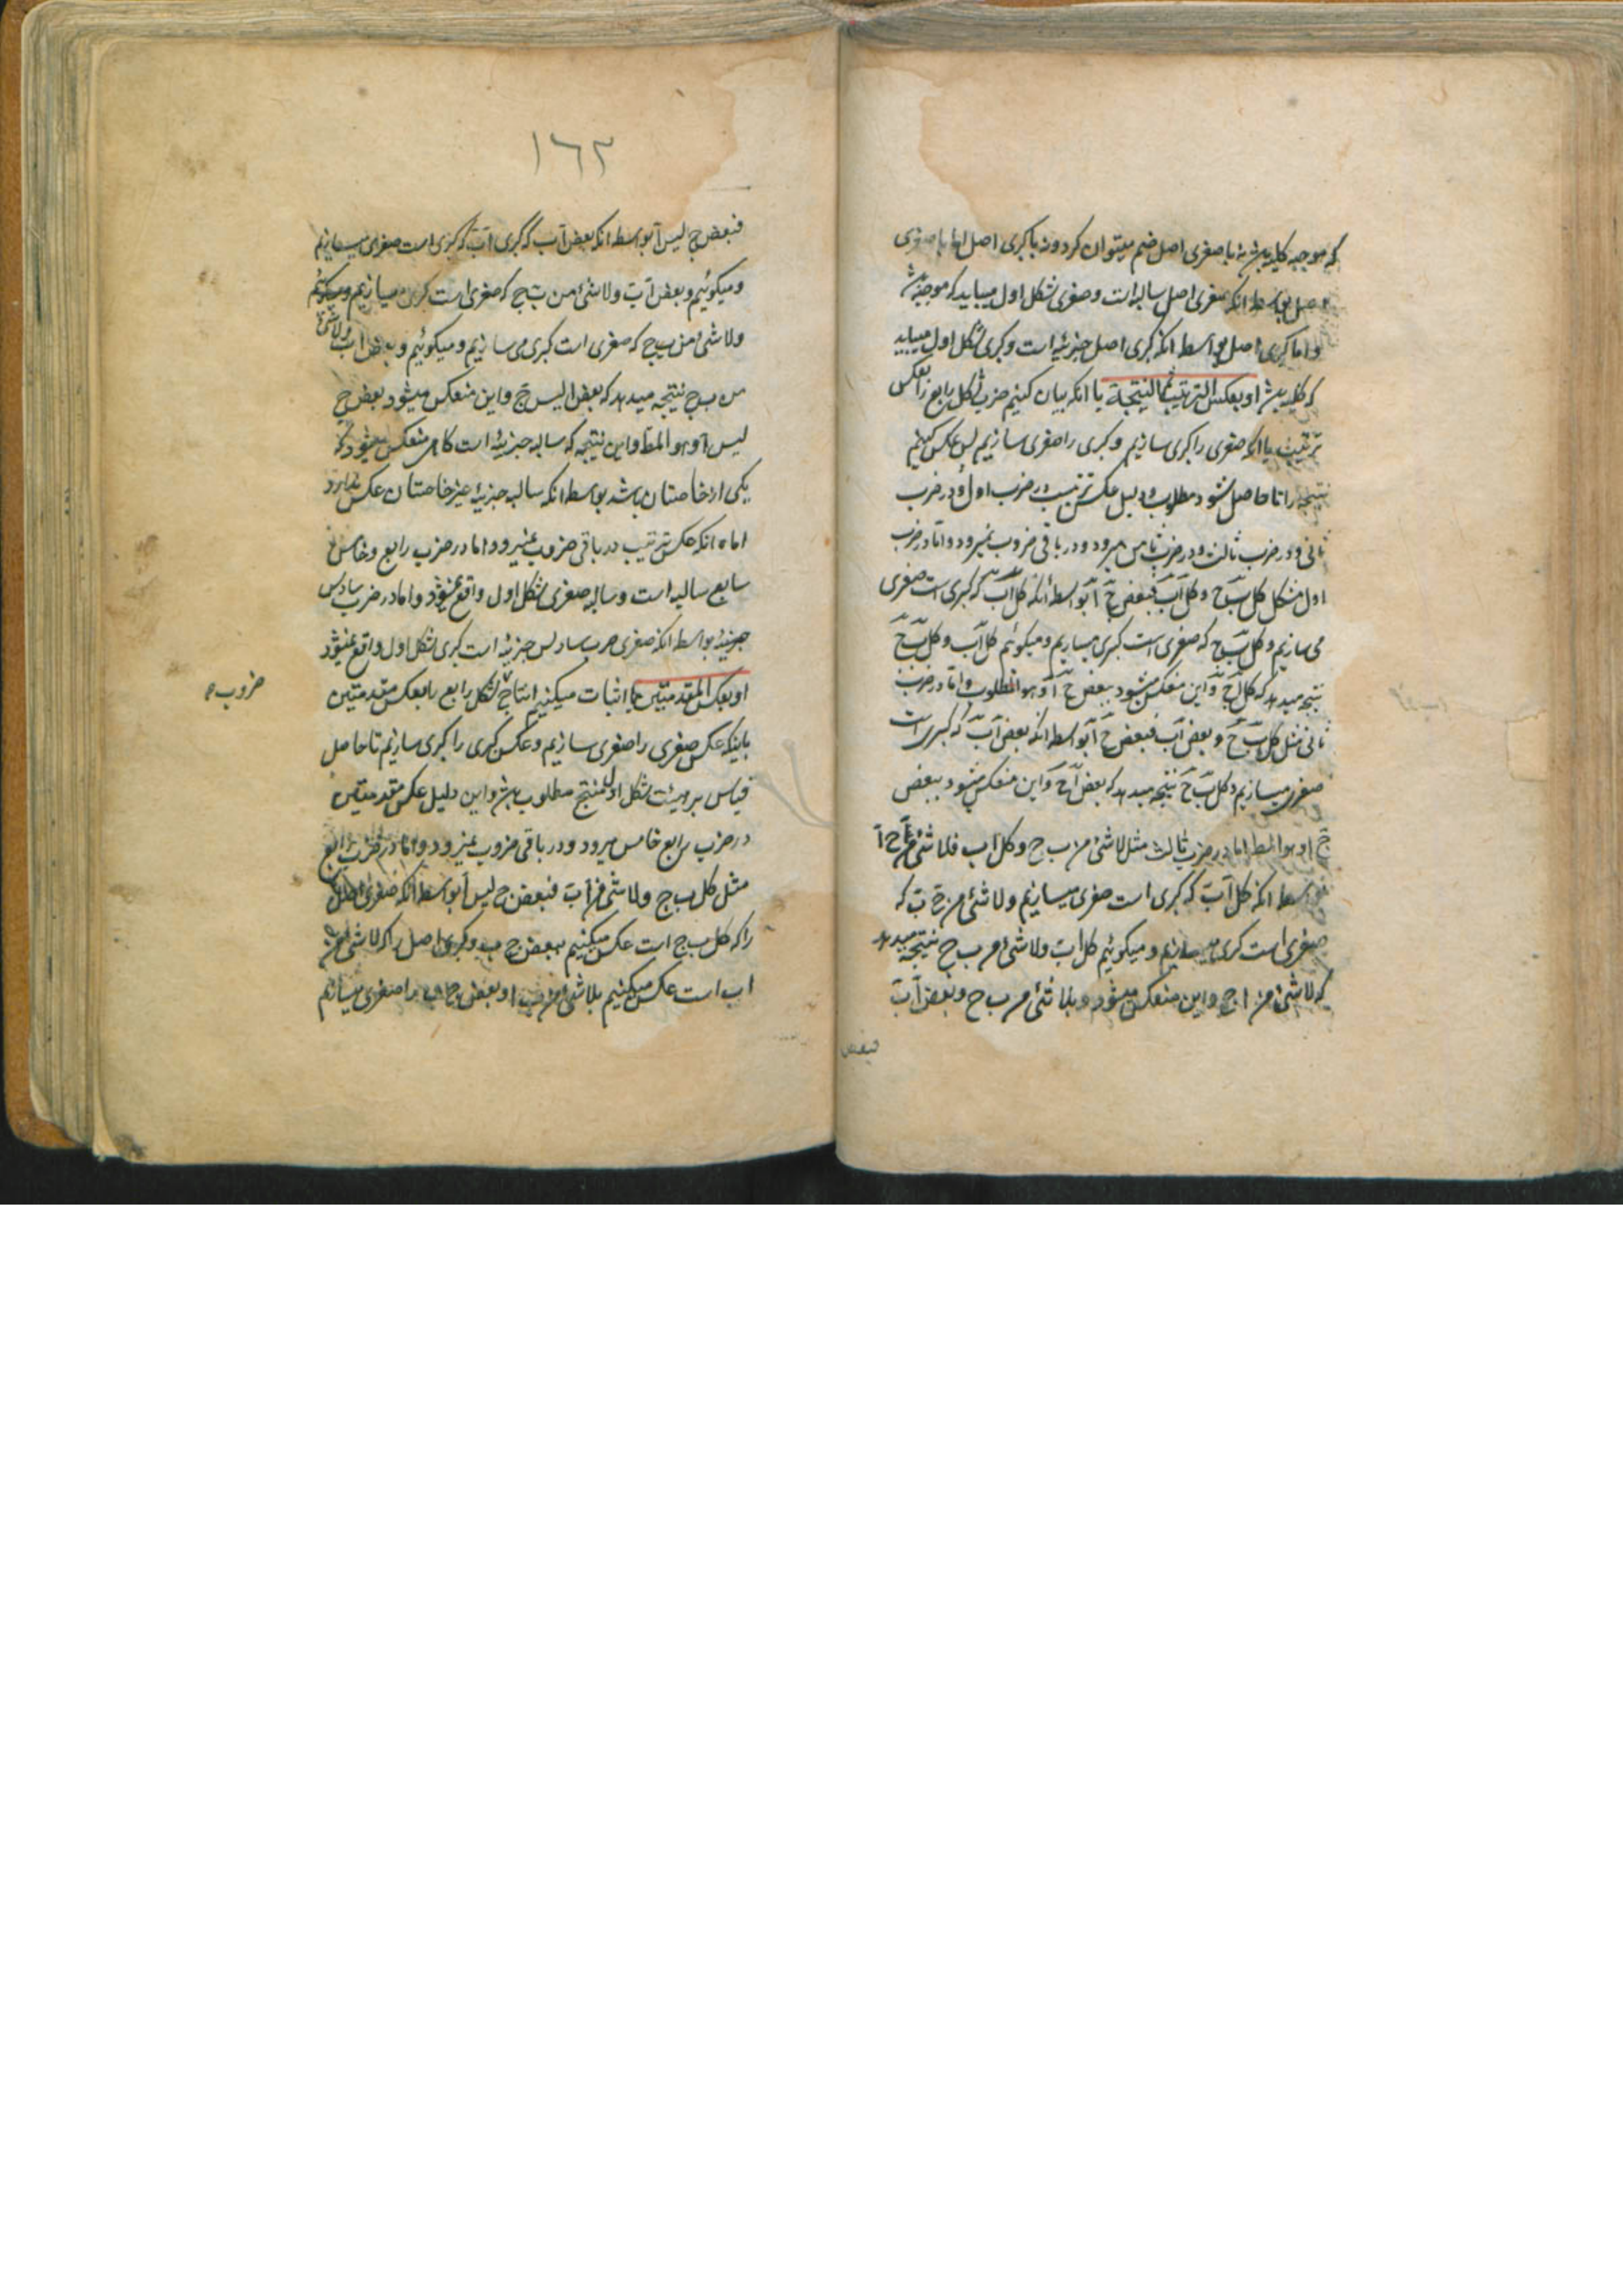 که موجبه کلیه باشد نه با صغری اصل ضم میتوان کرد و نه با کبری اصل اما با صغری
اصل بواسطه انکه صغری اصل سالبه است و صغری شکل اول میباید که موجبه باشد
و اما کبری اصل بواسطه انکه کبری اصل جزئیه است و کبری شکل اول میباید
که کلیه باشد او بعکس الترتیب ثم النتیجة یا انکه بیان کنیم ضرب شکل رابع را بعکس
ترتیب یا انکه صغری را کبری سازیم و کبری را صغری سازیم پس عکس کنیم
نتیجه را تا حاصل شود مطلوب و دلیل عکس ترتیب در ضرب اول و در ضرب
ثانی و در ضرب ثالث و در ضرب ثامن میرود و در باقی ضروب نمیرود و اما در ضرب
اول مثل کل ب ج و کل آب فبعض ج آ بواسطه انکه کل آب که کبری است صغری
می سازیم و کل ب ج که صغری است کبری میسازیم و میکوئیم کل آب و کل ب ج
نتیجه میدهد که کل آج و این منعکس میشود ببعض ج آ و هو المطلوب و اما در ضرب
ثانی مثل کل ب ج و بعض آب فبعض ج آ بواسطه انکه بعض آب که کبری است
صغری میسازیم و کل ب ج نتیجه میدهد که بعض آج و این منعکس میشود ببعض
ج ا و هو المط اما در ضرب ثالث مثل لاشئ من ب ج و کل اب فلاشئ من ج آ
بواسطه انکه کل آب که کبری است صغری میسازیم و لاشئ من ج ب که
صغری است کبری میسازیم و میکوئیم کل اب ولاشئ من ب ج نتیجه میدهد
که لاشئ من ا ج و این منعکس میشود و بلاشئ من ب ج و بعض آب
فبعض
١٦٣
فبعض ج لیس آ بواسطه انکه بعض آب که کبری آب که کبری است صغری میسازیم
و میکوئیم و بعض آب ولاشئ من ب ج که صغری است کبری میسازیم و میکوئیم
ولاشئ من ب ج که صغری است کبری می سازیم و میکوئیم و بعض اب ولاشئ
من ب ج نتیجه میدهد که بعض ا لیس ج و این منعکس میشود بعض ج
لیس آ و هو المط و این نتیجه که سالبه جزئیه است کاهی منعکس میشود که
یکی از خاصتان باشد بواسطه انکه سالبه جزئیه غیر خاصتان عکس ندارد
اما انکه عکس ترتیب در باقی ضروب نمیرود اما در ضرب رابع و خامس
سابع سالبه است و سالبه صغری شکل اول واقع نمیشود و اما در ضرب سادس
جزئیه بواسطه انکه صغری ضرب سادس جزئیه است کبری شکل اول واقع نمیشود
او بعکس المقدمتین یا اثبات میکنیم انتاج شکل رابع را بعکس مقدمتین
ضروب
باینکه عکس صغری را صغری سازیم و عکس کبری را کبری سازیم تا حاصل
قیاس بر هیئت شکل اول منتج مطلوب باشد و این دلیل عکس مقدمتین
در ضرب رابع خامس میرود و در باقی ضروب نمیرود و اما در ضرب رابع
مثل کل ب ج ولاشئ من آب فبعض ج لیس آ بواسطه انکه صغری اصل
را که کل ب ج است عکس میکنیم ببعض ج ب و کبری اصل را که لاشئ من
اب است عکس میکنیم بلاشئ من ب ا و بعض ج ب را صغری میسازیم